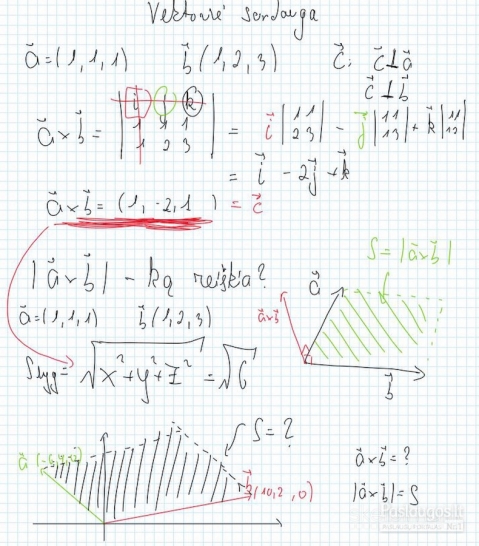 Vektorinė sandauga
a⃗=(1,1,1)   b⃗(1,2,3)   c⃗: c⃗⊥a⃗
c⃗⊥b⃗
a⃗×b⃗ = |i j k; 1 1 1; 1 2 3| = i⃗|1 1; 2 3| - j⃗|1 1; 1 3| + k⃗|1 1; 1 2|
= i⃗ - 2j⃗ + k⃗
a⃗×b⃗ = (1, -2, 1) = c⃗
|a⃗×b⃗| - ką reiškia?
S=|a⃗×b⃗|
a⃗=(1,1,1)   b⃗(1,2,3)
a⃗
a⃗×b⃗
b⃗
Slyg= √x²+y²+z² = √6
S=?
a⃗×b⃗=?
b⃗(10,2,0)
|a⃗×b⃗|=S
Paslaugos.lt
.Net